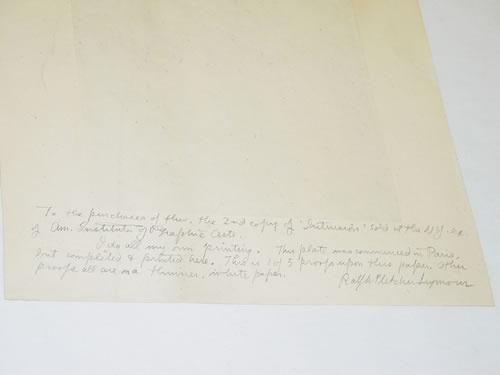 To the purchaser of this. the 2nd copy of "Interior" sold at the N.Y. ex.
of Am. Institute of Graphic Arts.
I do all my own printing. This plate was commenced in Paris,
but completed & printed here. This is 1 of 5 proofs upon this paper. Other
proofs all are on a thinner, white paper.
Ralph Fletcher Seymour